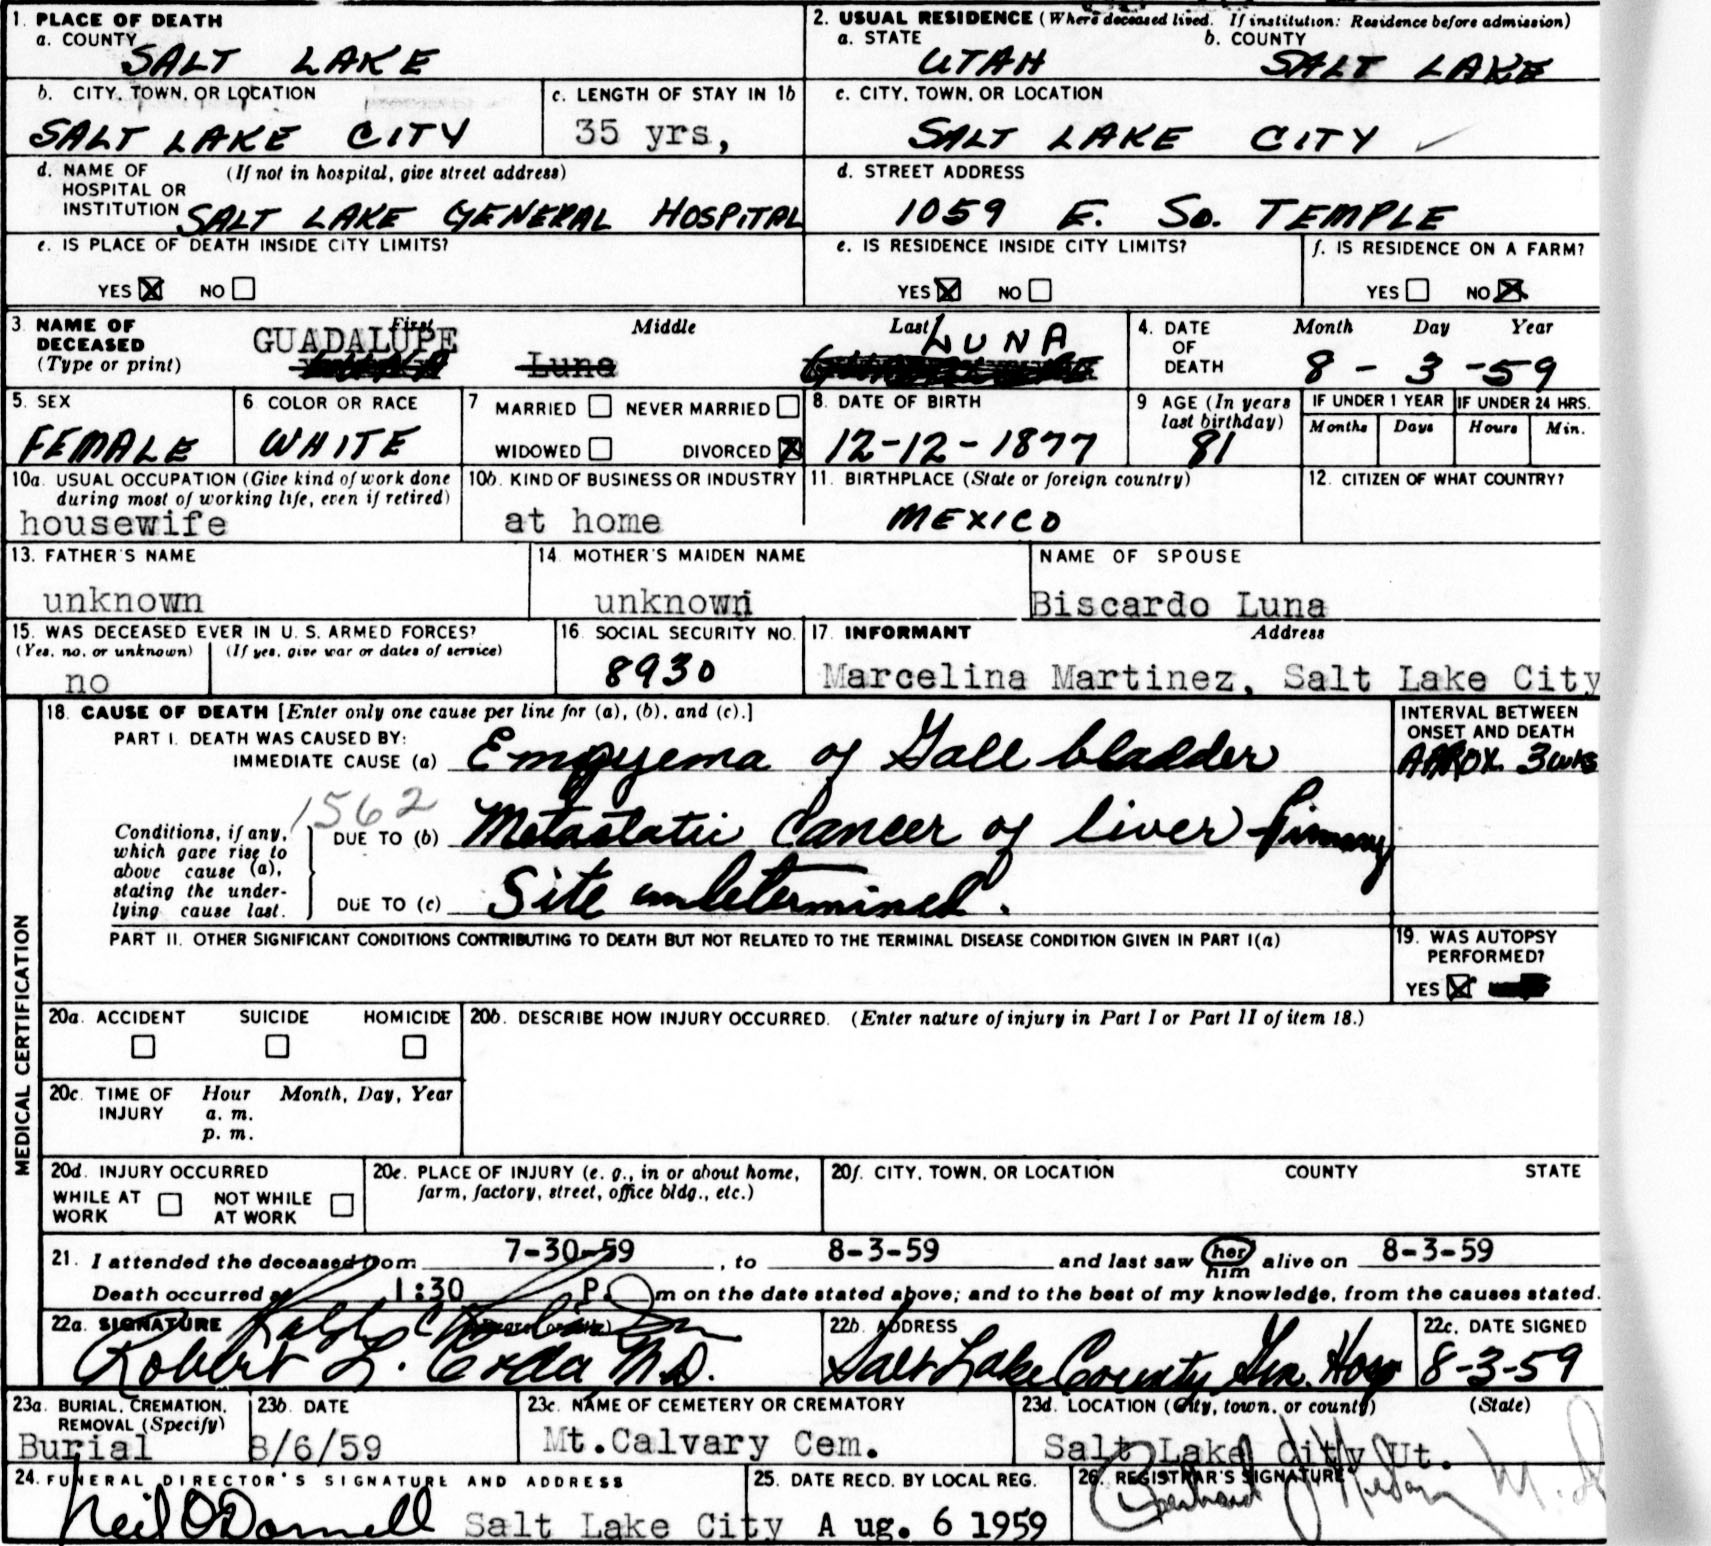 1. PLACE OF DEATH
a. COUNTY
SALT LAKE
2. USUAL RESIDENCE (Where deceased lived. If institution: Residence before admission)
a. STATE b. COUNTY
UTAH SALT LAKE
b. CITY, TOWN, OR LOCATION
SALT LAKE CITY
c. LENGTH OF STAY IN 1b
35 yrs,
c. CITY, TOWN, OR LOCATION
SALT LAKE CITY
d. NAME OF (If not in hospital, give street address)
HOSPITAL OR
INSTITUTION SALT LAKE GENERAL HOSPITAL
d. STREET ADDRESS
1059 E. So. TEMPLE
e. IS PLACE OF DEATH INSIDE CITY LIMITS?
YES NO
e. IS RESIDENCE INSIDE CITY LIMITS?
YES NO
f. IS RESIDENCE ON A FARM?
YES NO
3. NAME OF DECEASED (Type or print)
First Middle Last
GUADALUPE Luna LUNA
4. DATE OF DEATH
Month Day Year
8 - 3 - 59
5. SEX
FEMALE
6. COLOR OR RACE
WHITE
7 MARRIED NEVER MARRIED
WIDOWED DIVORCED
8. DATE OF BIRTH
12-12-1877
9 AGE (In years last birthday)
81
IF UNDER 1 YEAR
Months Days
IF UNDER 24 HRS.
Hours Min.
10a. USUAL OCCUPATION (Give kind of work done
during most of working life, even if retired)
housewife
10b. KIND OF BUSINESS OR INDUSTRY
at home
11. BIRTHPLACE (State or foreign country)
MEXICO
12. CITIZEN OF WHAT COUNTRY?
13. FATHER'S NAME
unknown
14. MOTHER'S MAIDEN NAME
unknown
NAME OF SPOUSE
Biscardo Luna
15. WAS DECEASED EVER IN U. S. ARMED FORCES?
(Yes, no, or unknown) (If yes, give war or dates of service)
no
16. SOCIAL SECURITY NO.
8930
17. INFORMANT Address
Marcelina Martinez, Salt Lake City
MEDICAL CERTIFICATION
18. CAUSE OF DEATH [Enter only one cause per line for (a), (b), and (c).]
PART I. DEATH WAS CAUSED BY:
IMMEDIATE CAUSE (a) Empyema of Gall bladder
INTERVAL BETWEEN
ONSET AND DEATH
APPROX. 3 wks
1562
Conditions, if any,
which gave rise to
above cause (a),
stating the under-
lying cause last.
DUE TO (b) Metastatic Cancer of liver - Primary
DUE TO (c) Site undetermined.
PART II. OTHER SIGNIFICANT CONDITIONS CONTRIBUTING TO DEATH BUT NOT RELATED TO THE TERMINAL DISEASE CONDITION GIVEN IN PART I(a)
19. WAS AUTOPSY
PERFORMED?
YES
20a. ACCIDENT SUICIDE HOMICIDE
20b. DESCRIBE HOW INJURY OCCURRED. (Enter nature of injury in Part I or Part II of item 18.)
20c. TIME OF INJURY
Hour Month, Day, Year
a. m.
p. m.
20d. INJURY OCCURRED
WHILE AT WORK NOT WHILE AT WORK
20e. PLACE OF INJURY (e. g., in or about home,
farm, factory, street, office bldg., etc.)
20f. CITY, TOWN, OR LOCATION COUNTY STATE
21. I attended the deceased from 7-30-59, to 8-3-59 and last saw her him alive on 8-3-59
Death occurred at 1:30 P. m on the date stated above; and to the best of my knowledge, from the causes stated.
22a. SIGNATURE
Ralph C
Robert L. M.D.
22b. ADDRESS
Salt Lake County Gen. Hosp
22c. DATE SIGNED
8-3-59
23a. BURIAL, CREMATION,
REMOVAL (Specify)
Burial
23b. DATE
8/6/59
23c. NAME OF CEMETERY OR CREMATORY
Mt.Calvary Cem.
23d. LOCATION (City, town, or county) (State)
Salt Lake City Ut.
24. FUNERAL DIRECTOR'S SIGNATURE AND ADDRESS
Neil O'Donnell Salt Lake City
25. DATE RECD. BY LOCAL REG.
Aug. 6 1959
26. REGISTRAR'S SIGNATURE
M.D.